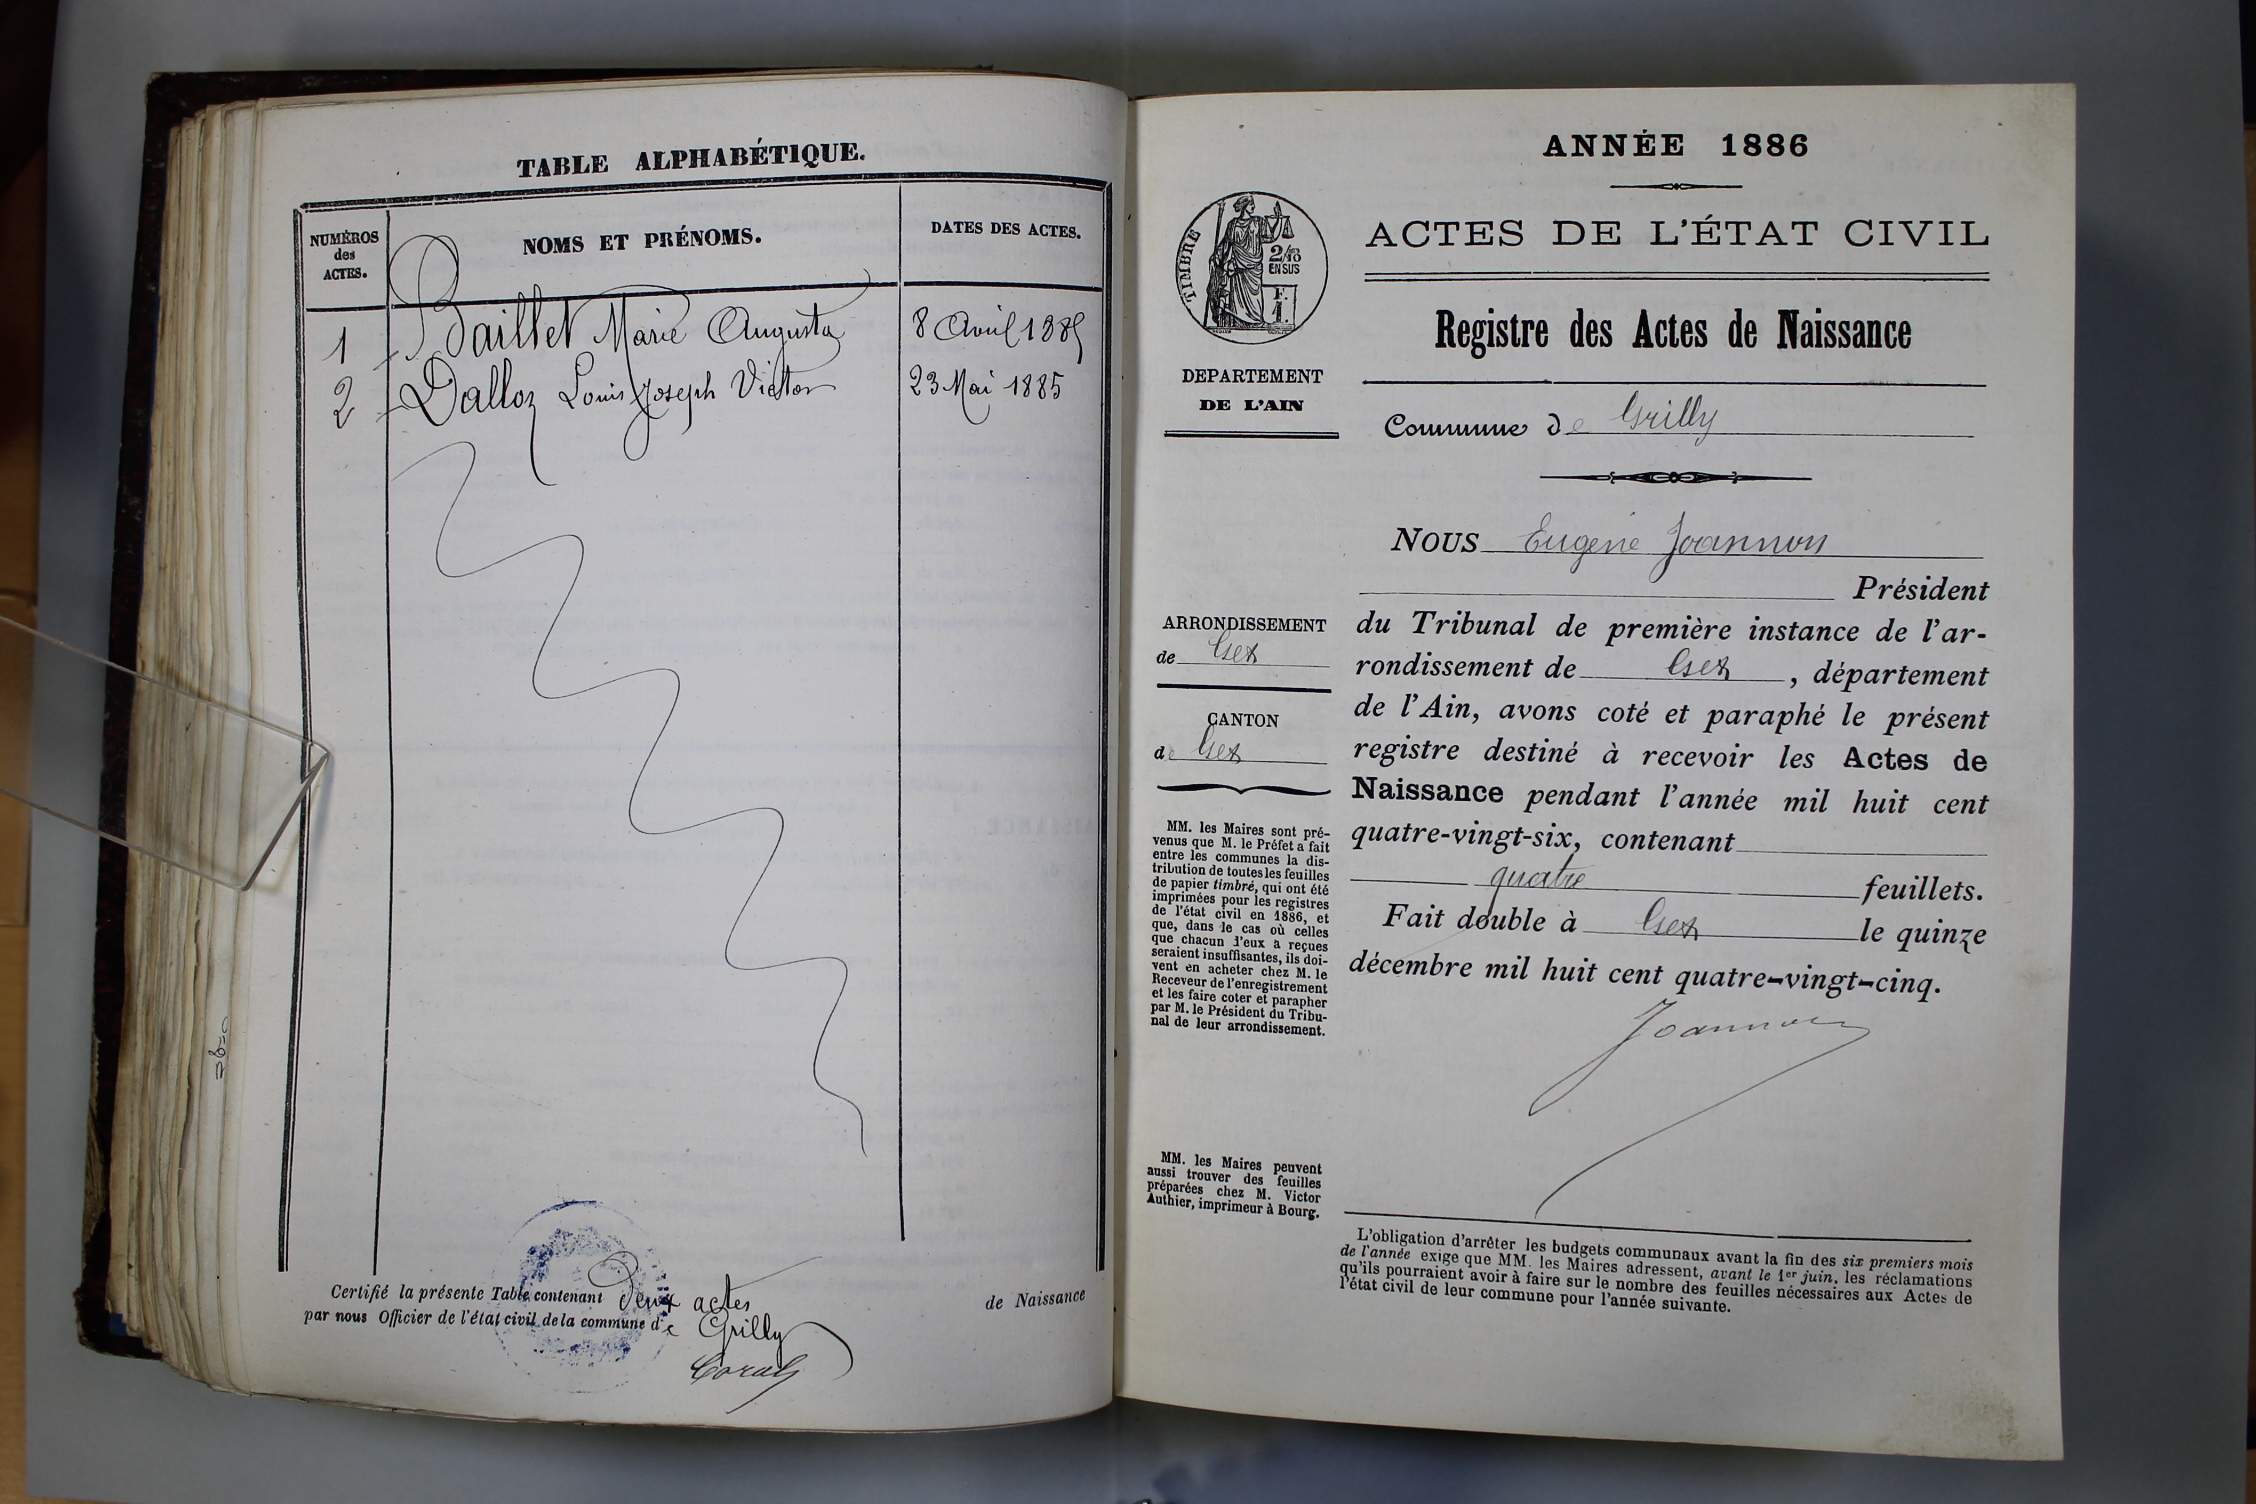 TABLE ALPHABÉTIQUE.
NUMÉROS
des
ACTES.
NOMS ET PRÉNOMS.
DATES DES ACTES.
1 Baillet Marie Augusta 8 Avril 1885
2 Dalloz Louis Joseph Victor 23 Mai 1885
Certifié la présente Table contenant deux actes de Naissance
par nous Officier de l'état civil de la commune de Grilly
ANNÉE 1886
ACTES DE L'ÉTAT CIVIL
TIMBRE
2/10
EN SUS
F.
1.
Registre des Actes de Naissance
DEPARTEMENT
DE L'AIN
Commune de Grilly
NOUS Eugène Joannon
Président
du Tribunal de première instance de l'ar-
rondissement de Gex, département
de l'Ain, avons coté et paraphé le présent
registre destiné à recevoir les Actes de
Naissance pendant l'année mil huit cent
quatre-vingt-six, contenant
quatre feuillets.
Fait double à Gex le quinze
décembre mil huit cent quatre-vingt-cinq.
Joannon
ARRONDISSEMENT
de Gex
CANTON
de Gex
MM. les Maires sont pré-
venus que M. le Préfet a fait
entre les communes la dis-
tribution de toutes les feuilles
de papier timbré, qui ont été
imprimées pour les registres
de l'état civil en 1886, et
que, dans le cas où celles
que chacun d'eux a reçues
seraient insuffisantes, ils doi-
vent en acheter chez M. le
Receveur de l'enregistrement
et les faire coter et parapher
par M. le Président du Tribu-
nal de leur arrondissement.
MM. les Maires peuvent
aussi trouver des feuilles
préparées chez M. Victor
Authier, imprimeur à Bourg.
L'obligation d'arrêter les budgets communaux avant la fin des six premiers mois
de l'année exige que MM. les Maires adressent, avant le 1er juin, les réclamations
qu'ils pourraient avoir à faire sur le nombre des feuilles nécessaires aux Actes de
l'état civil de leur commune pour l'année suivante.